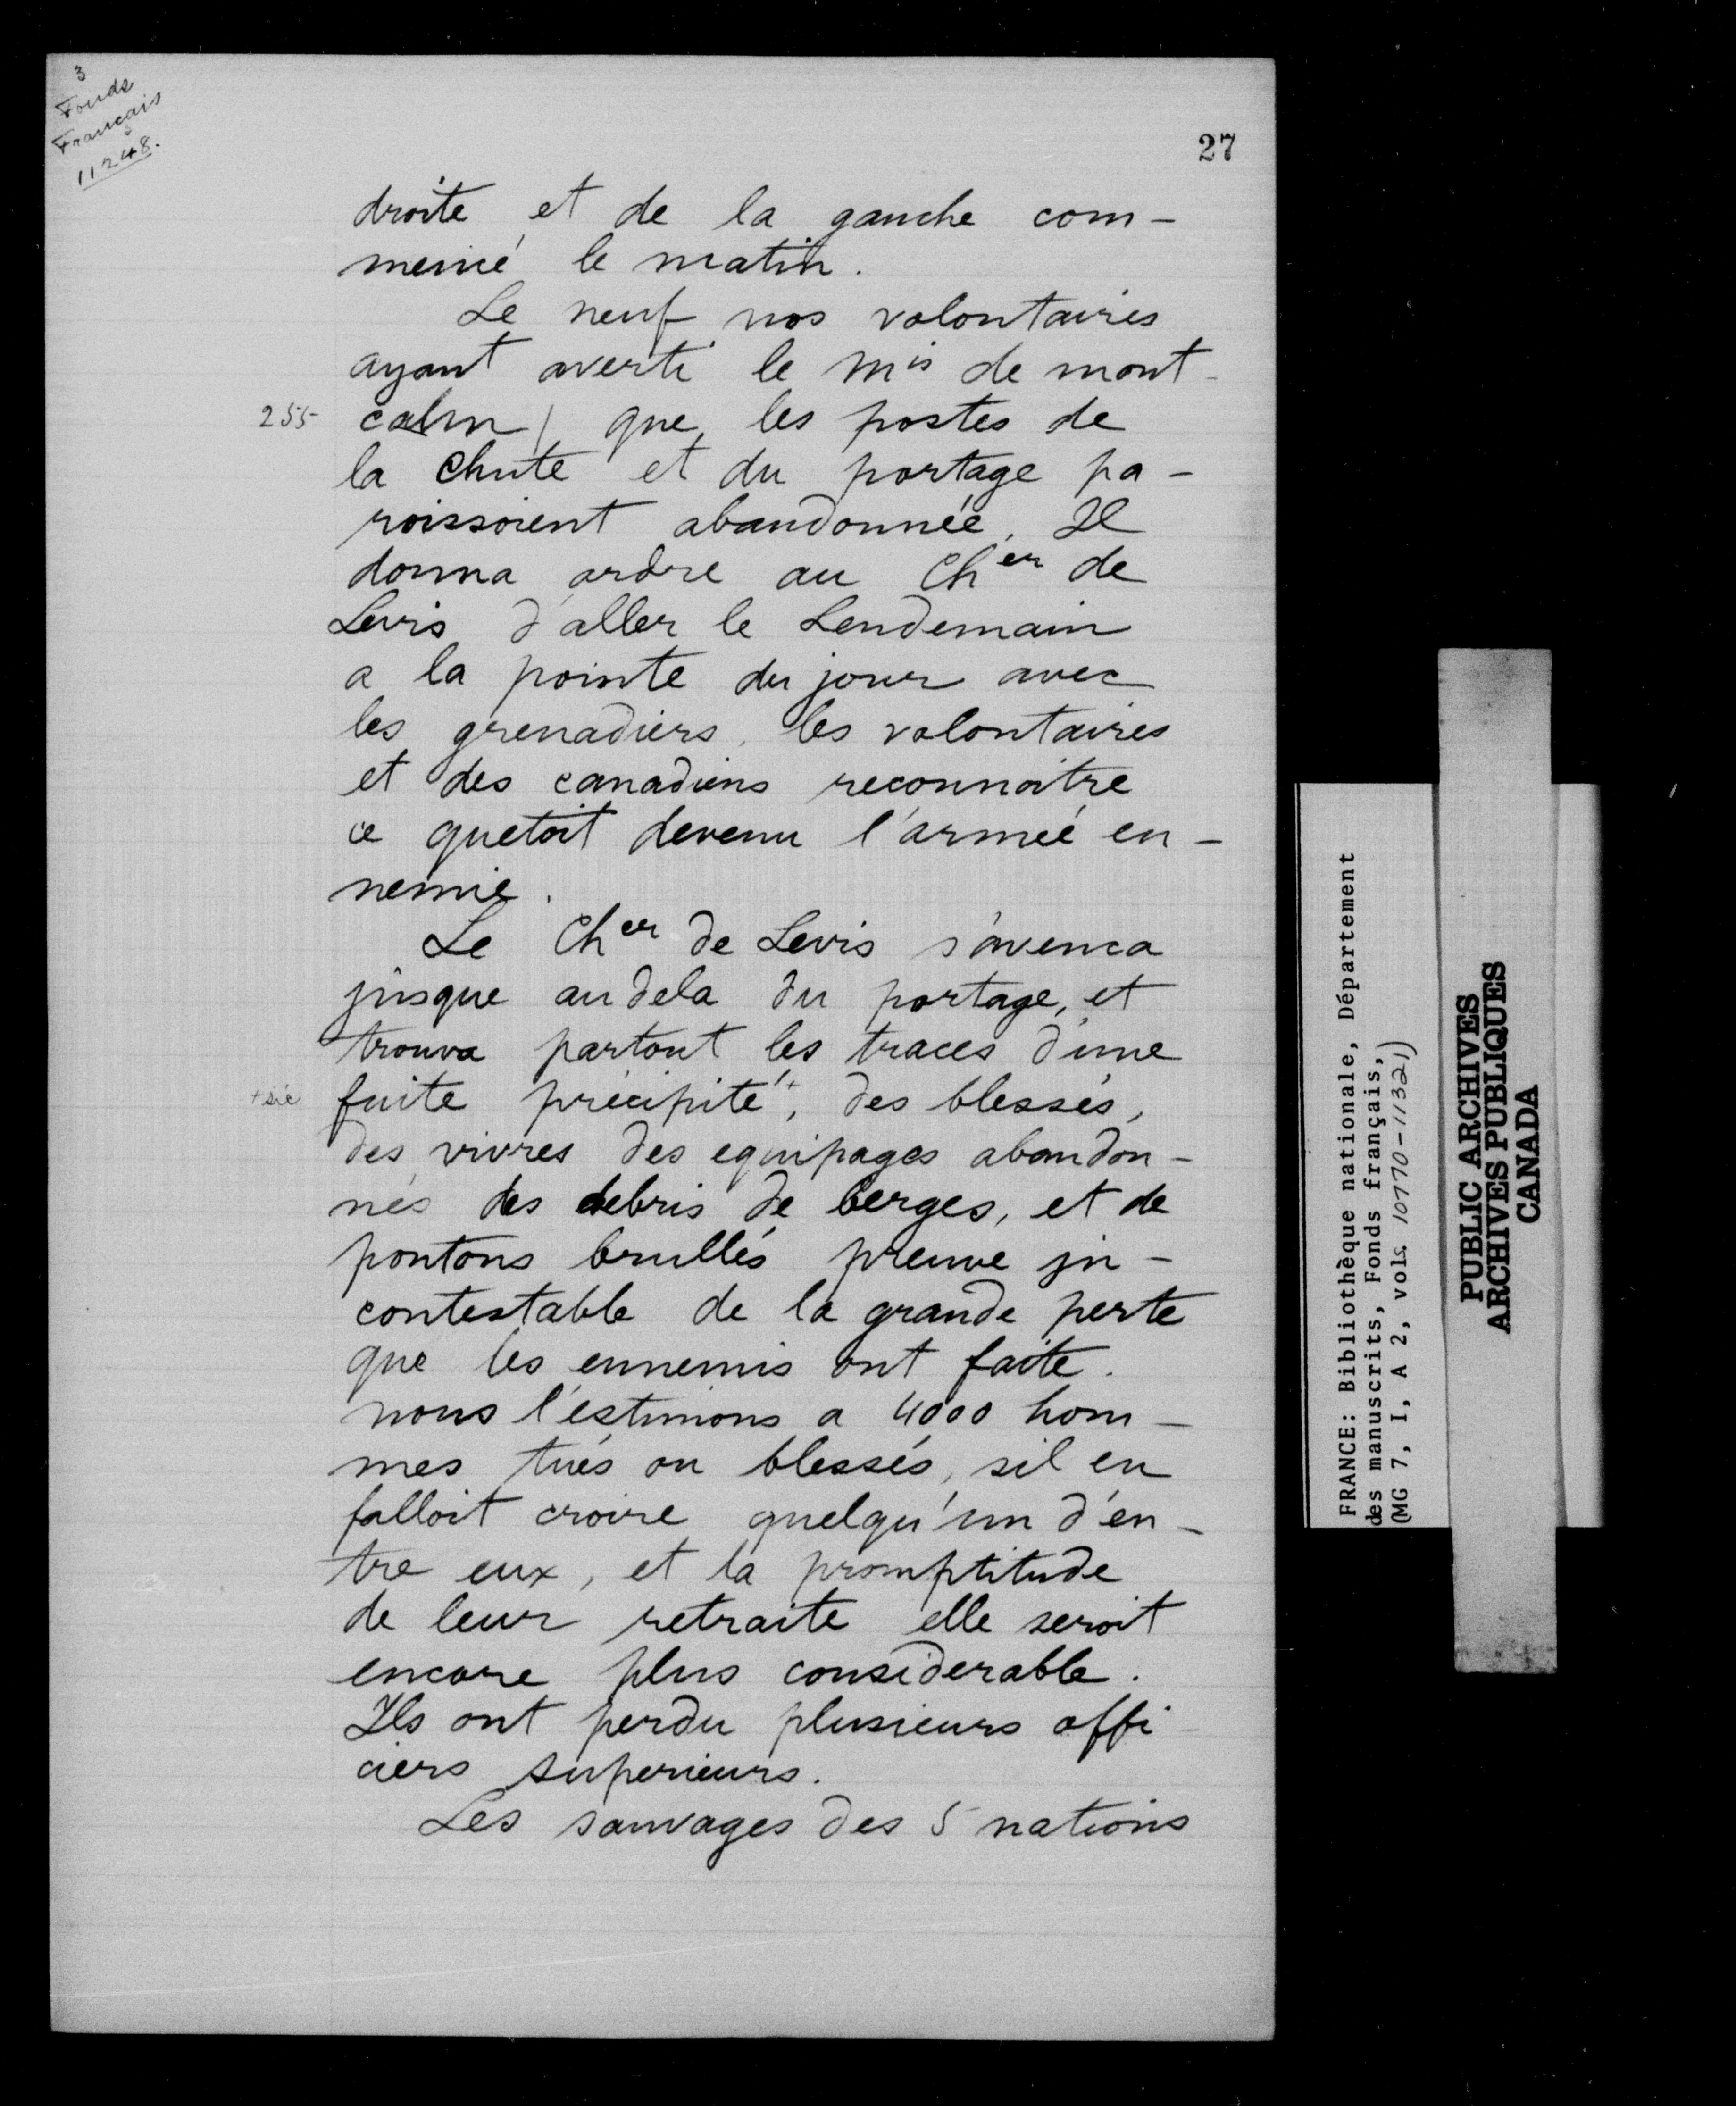 3
Fonds
Francais
3
11248.
27
droite et de la gauche com-
mencé le matin.
Le neuf nos volontaires
ayant averti le Mis de mont-
255 calm / que les postes de
la Chute et du portage pa-
roissoient abandonnée, Il
donna ordre au Cher de
Levis d'aller le Lendemain
a la pointe du jour avec
les grenadiers, les volontaires
et des canadiens reconnoitre
ce quetoit devenu l'armée en-
nemie.
Le Cher de Levis s'avenca
jusque au dela du portage, et
trouva partout les traces d'une
+ sic fuite précipité+, des blessés,
des vivres des equipages abandon-
nés des debris de berges, et de
pontons brullés preuve jn-
contestable de la grande perte
que les ennemis ont faite.
nous l'estimons a 4000 hom-
mes tués ou blessés, sil en
falloit croire quelqu'un d'en-
tre eux, et la promptitude
de leur retraite elle seroit
encore plus considerable.
Ils ont perdu plusieurs offi-
ciers superieurs.
Les sauvages des 5 nations
FRANCE: Bibliothèque nationale, Département
des manuscrits, Fonds français,
(MG 7, I, A 2, vols. 10770-11321)
PUBLIC ARCHIVES
ARCHIVES PUBLIQUES
CANADA